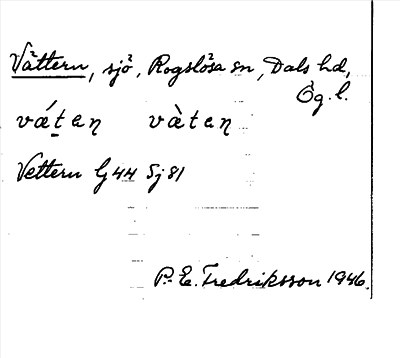 Vättern, sjö, Rogslösa sn, Dals hd,
Ög. l.
vát̠eŋ vàteŋ
Vettern G44 Sj 81
P. E. Fredriksson 1946.